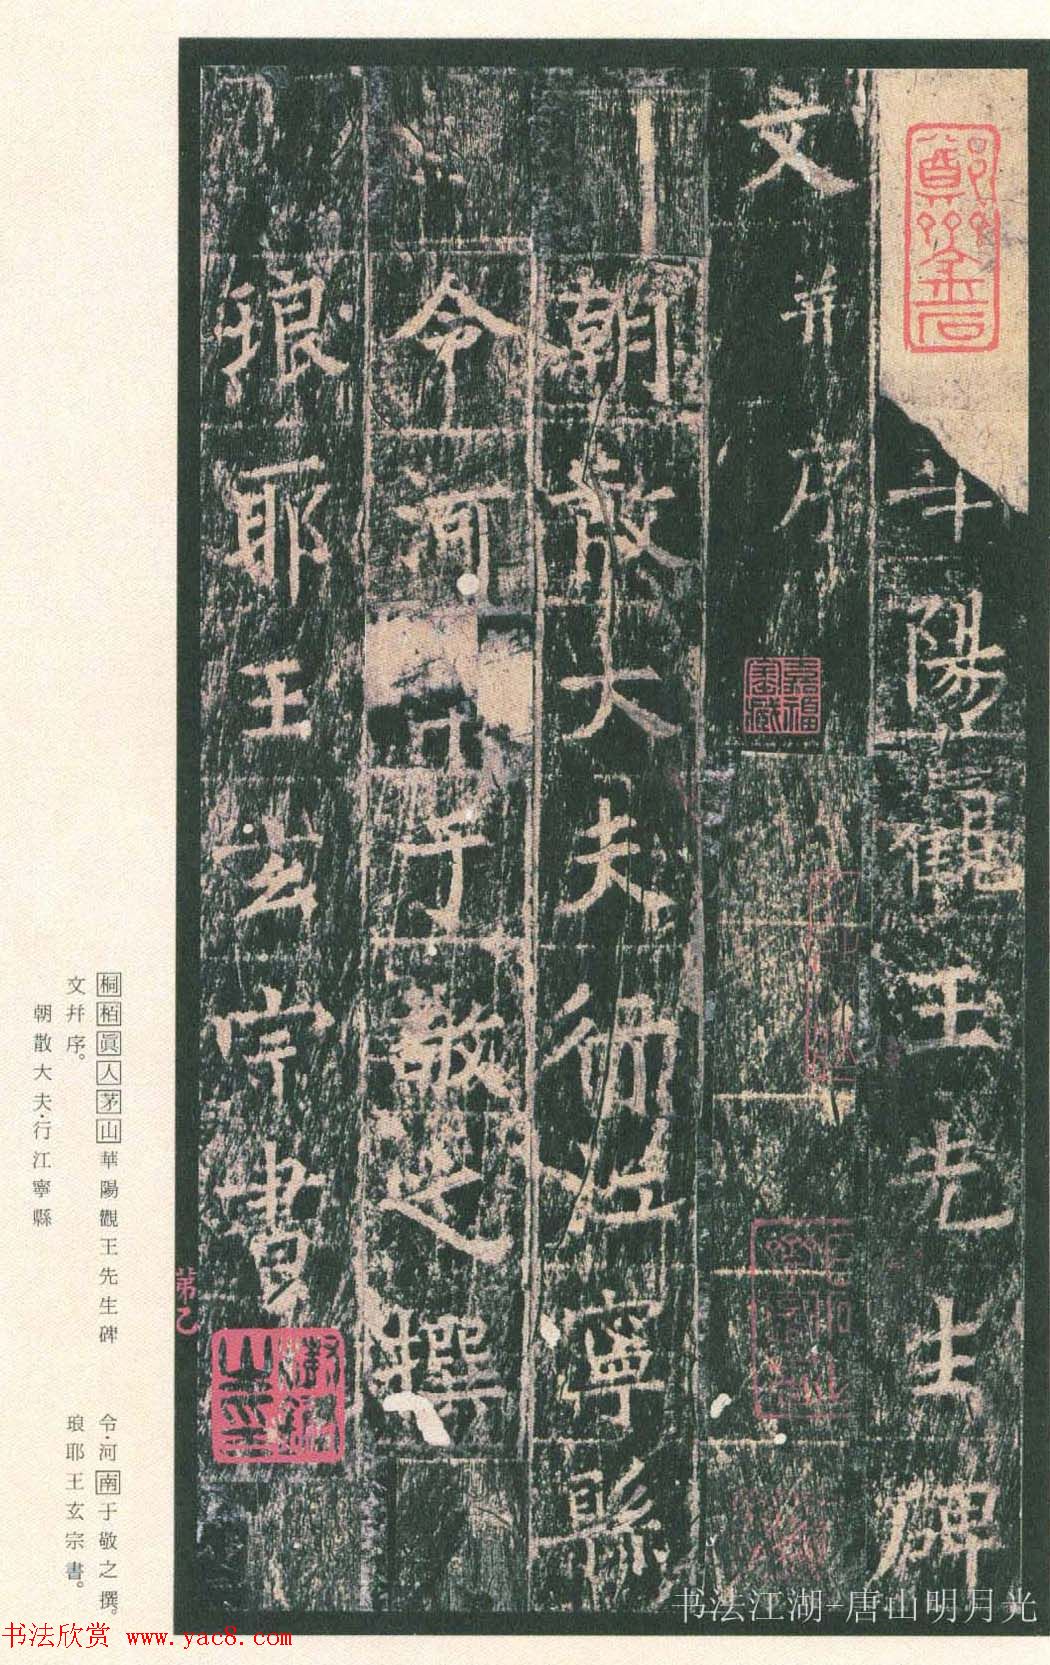 華陽觀王先生碑
文并序
朝散大夫行江寧縣
令河南于敬之撰
琅耶王玄宗書
嘉福
鄭齋金石
第乙
桐栢眞人茅山華陽觀王先生碑
文幷序。
朝散大夫·行江寧縣
令·河南于敬之撰。
琅耶王玄宗書。
书法江湖-唐山明月光
书法欣赏 www.yac8.com